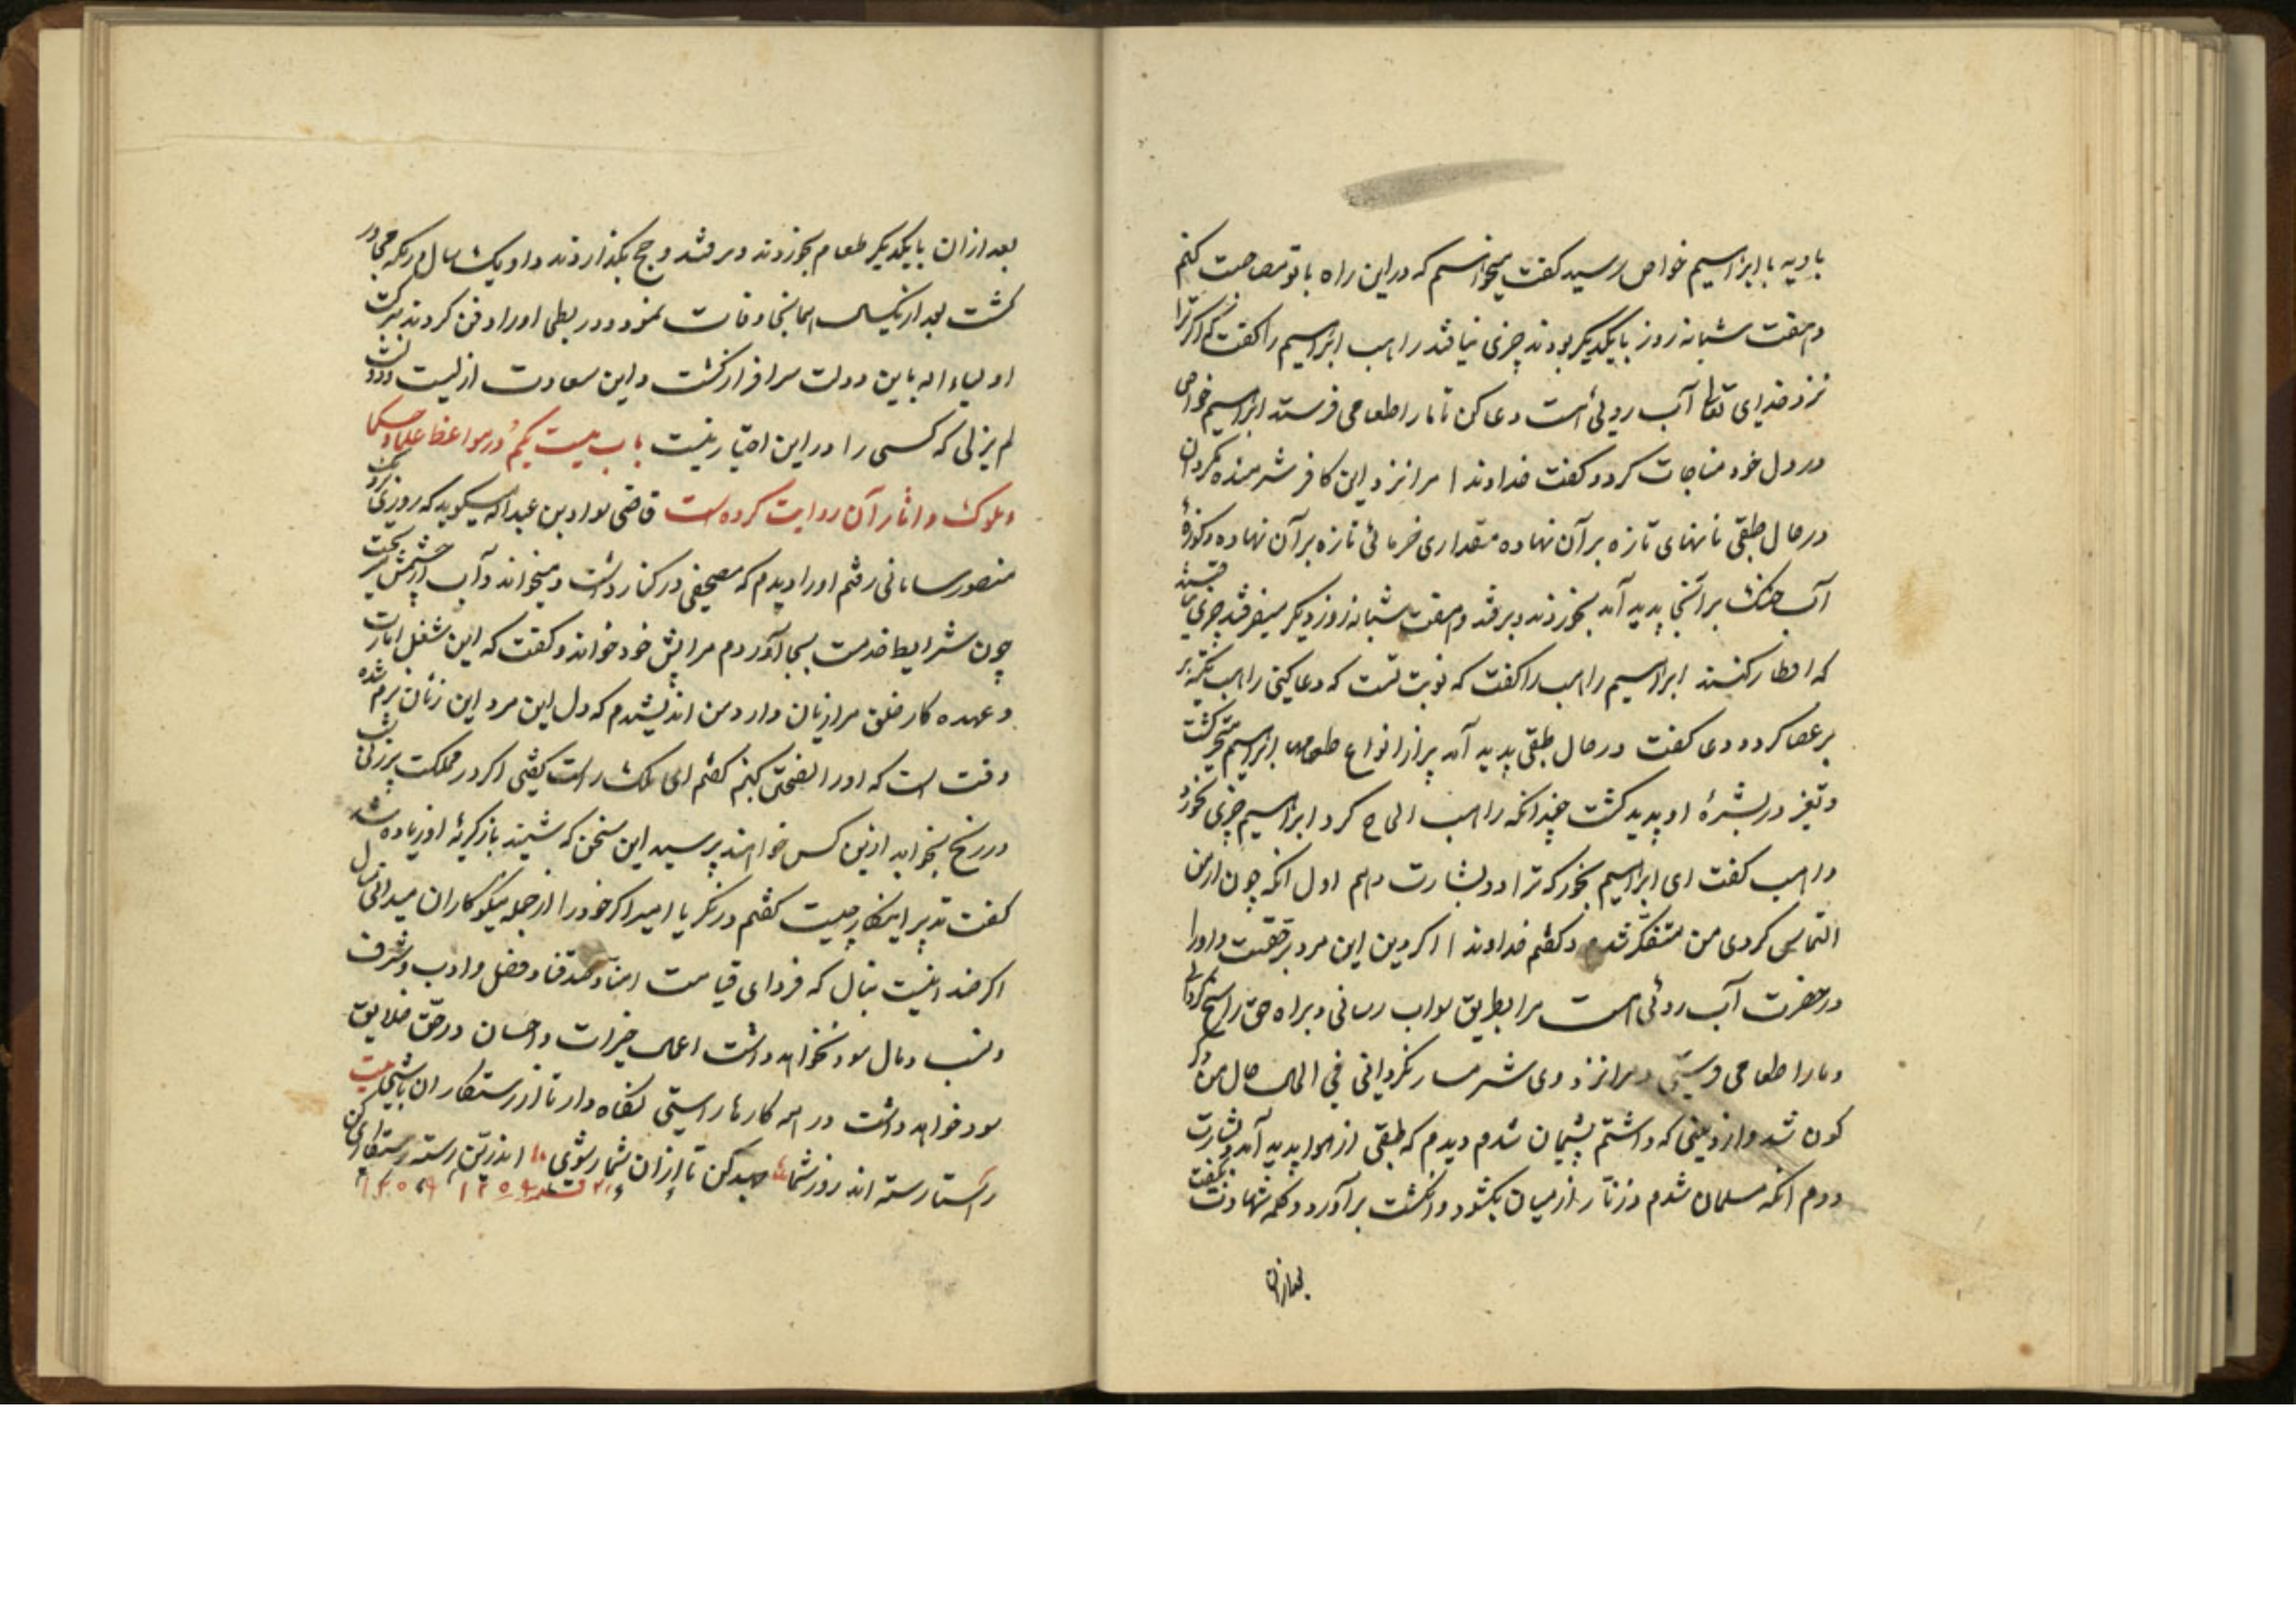 بادیه با ابراهیم خواص رسید کفت میخواهم که در این راه با تو مصاحبت کنم
و هفت شبانه روز با یکدیکر بودند چیزی نیافتند راهب ابراهیم را کفت که اکر ترا
نزد خدای تعالی آب روئی است دعا کن تا ما را طعامی فرستد ابراهیم خواص
در دل خود مناجات کرد و کفت خداوندا مرا نزد این کافر شرمنده مکردان
در حال طبقی نانهای تازه بر آن نهاده مقداری خرمائی تازه بر آن نهاده و کوزهٔ
آب خنک بر آنجا پدید آمد بخوردند و برفتند و هفت شبانه روز دیکر میرفتند چیزی نیافتند
که افطار کنند ابراهیم راهب را کفت که نوبت تست که دعا کنی راهب تکیه بر
بر عصا کرد و دعی کفت در حال طبقی پدید آمد پر از انواع طعامها ابراهیم متحیر کشت
و تغیر در بشرهٔ او پدید کشت چندانکه راهب الحاح کرد ابراهیم چیزی نخورد
راهب کفت ای ابراهیم بخور که ترا دو بشارت دهم اول انکه چون از من
التماس کردی من متفکر شدم و کفتم خداوندا اکر دین این مرد بر حقست و او را
در حضرت آب روئی هست مرا بطریق صواب رسانی و براه حق راسخ کردانی
و ما را طعامی فرستی و مرا نزد وی شرمسار نکردانی فی الحال حال من دکر
کون شد و از دینی که داشتم پشیمان شدم دیدم که طبقی از هوا پدید آمد و بشارت
دوم انکه مسلمان شدم و زنار از میان بکشود و انکشت برآورد و کلمه شهادت بکفت
بعد از ان
بعد از ان با یکدیکر طعام بخوردند و برفتند و حج بکذاردند و او یک سال در مکه مجاور
کشت بعد از یکسال همانجا وفات نمود و در بطحی او را دفن کردند ببرکت
اولیاء اله باین دولت سرافراز کشت و این سعادت ازلیست و دولت
لم یزلی که کسی را در این اختیار نیست باب بیست یکم در مواعظ علما و حکما
و ملوک و اثار آن روایت کرده است قاضی سواد بن عبداله میکوید که روزی نزدیک
منصور سامانی رفتم او را دیدم که مصحفی در کنار داشت و میخواند و آب از چشمش میریخت
چون شرایط خدمت بجا آوردم مرا پیش خود خواند و کفت که این شغل امارت
و عهده کار خلق مرا زیان دارد من اندیشیدم که دل این مرد این زمان نرم شده
وقت است که او را نصیحتی کنم کفتم ای ملک راست کفتی اکر در مملکت پیرزنی شب
در رنج بخوابد از تو کس خواهند پرسید این سخن که شنید باز کریهٔ او زیاده شد
کفت تدبیر اینکار چیست کفتم در نکر یا امیر اکر خود را از جمله نیکوکاران میدانی منال
اکر ضد اینست بنال که فردای قیامت امنا و صدقنا و فضل و ادب و شرف
و نسب و مال سود نخواهد داشت اعمال خیرات و احسان در حق خلایق
سود خواهد داشت در همه کارها راستی نکاه دار تا از رستکاران باشی بیت
راستا رسته اند روز شمار جهد کن تا از ان شمار شوی اندرین رسته رستکاری کن